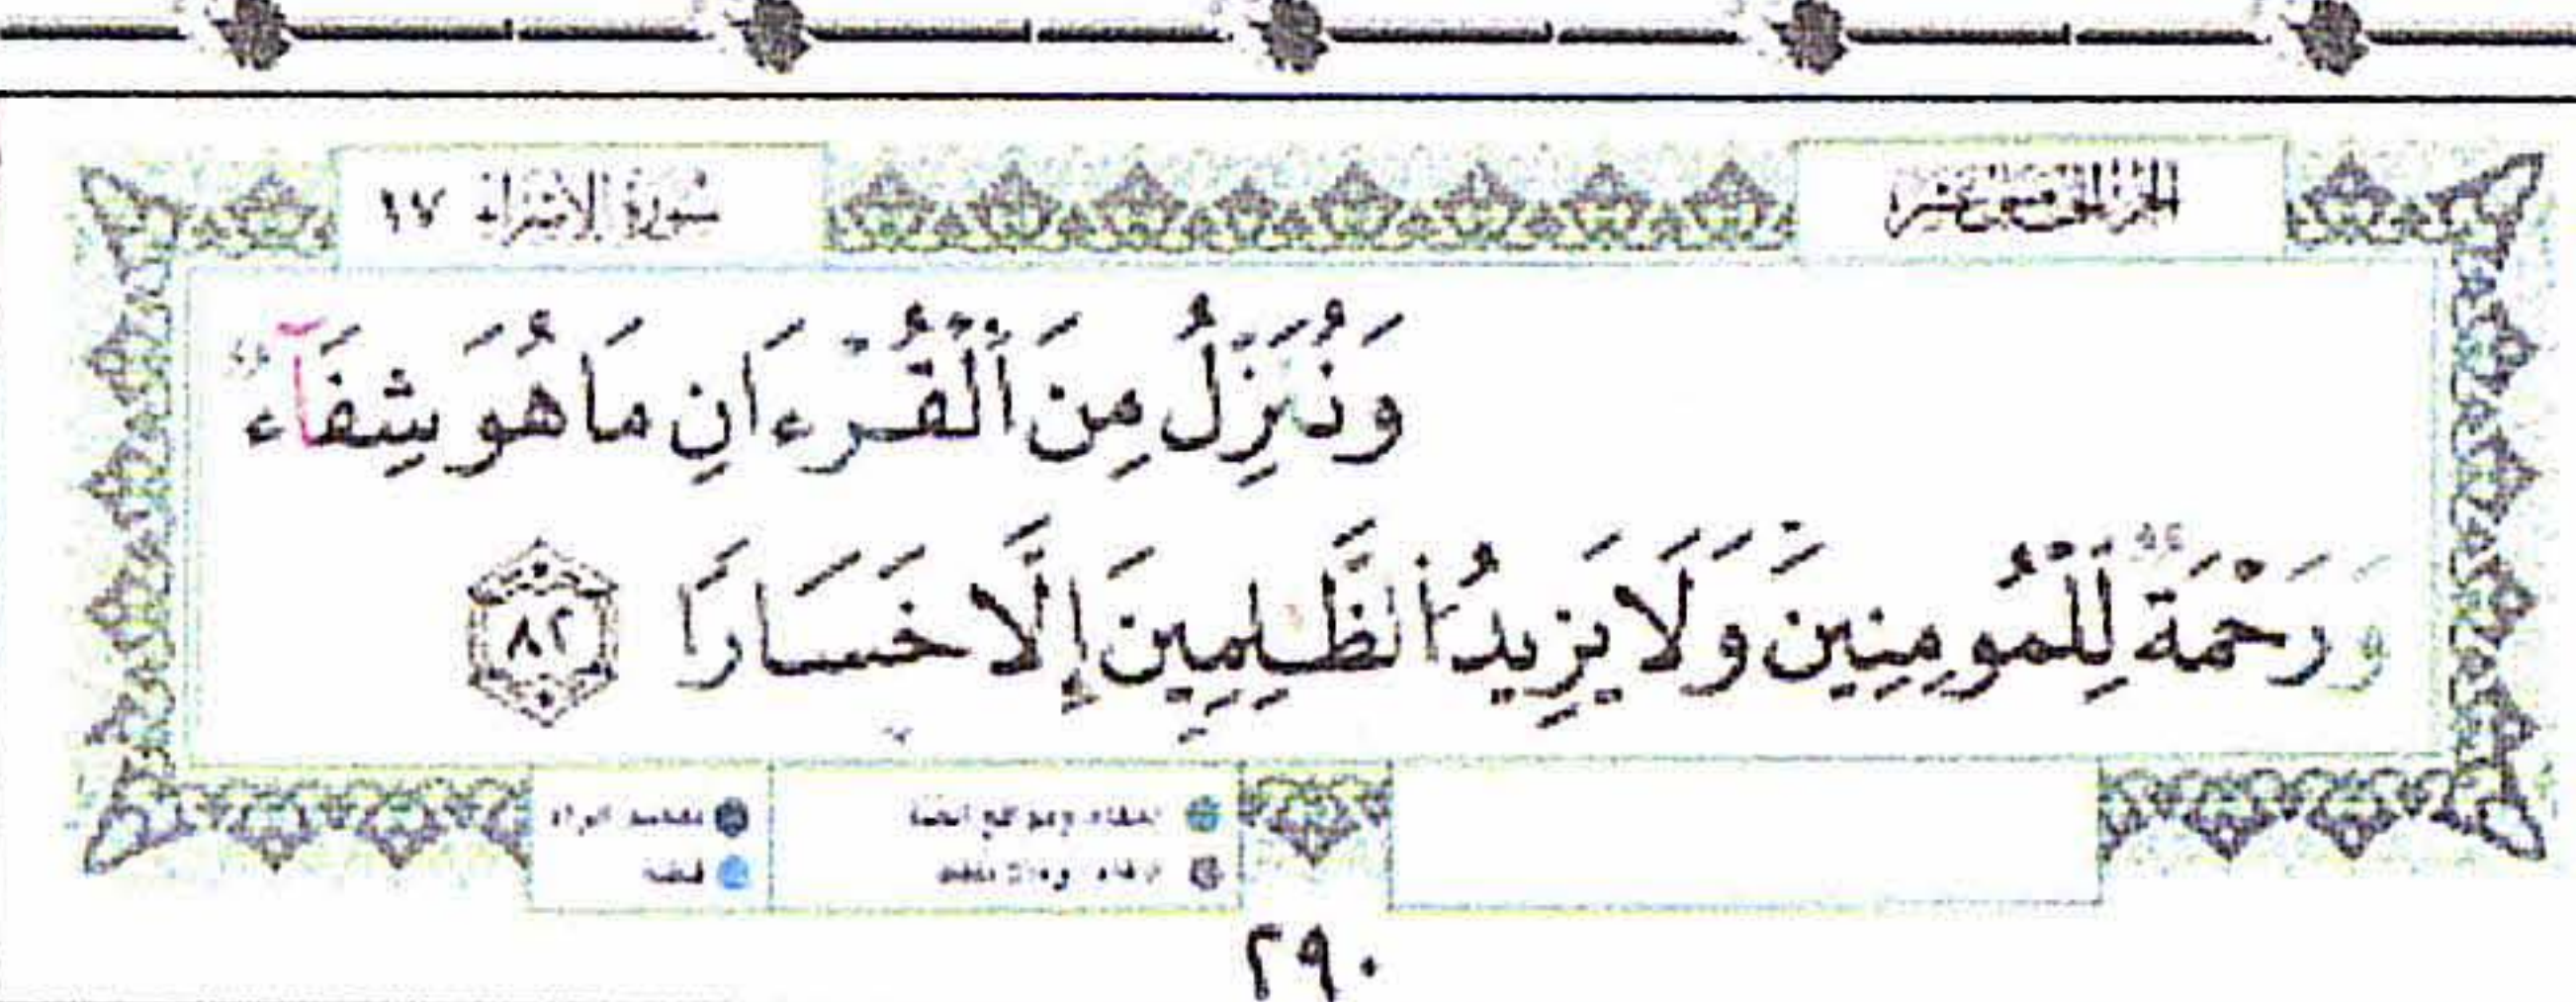 الجزء الخامس عشر
سُورَةُ الإِسْرَاء ١٧
وَنُنَزِّلُ مِنَ ٱلْقُرْءَانِ مَا هُوَ شِفَآءٌ
وَرَحْمَةٌ لِّلْمُومِنِينَ وَلَا يَزِيدُ ٱلظَّٰلِمِينَ إِلَّا خَسَارًا ٨٢
تفخيم الراء
قلقلة
٢٩٠